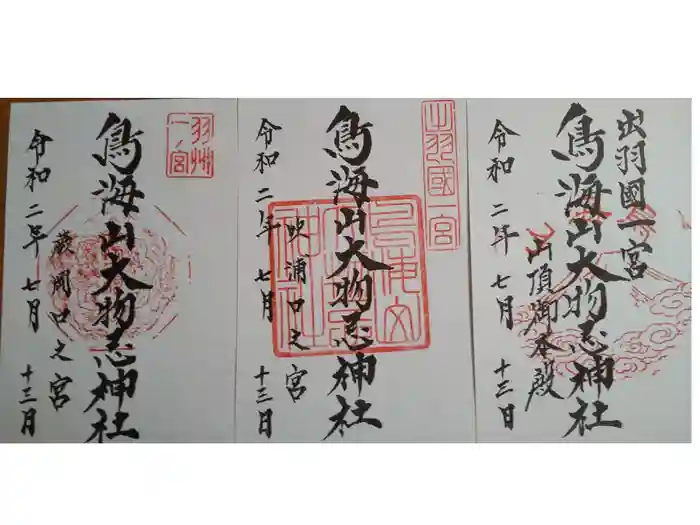 出羽國一宮
鳥海山大物忌神社
山頂御本殿
令和二年七月十三日
出羽國一宮
鳥海山大物忌神社
吹浦口之宮
令和二年七月十三日
羽州
一ノ宮
鳥海山大物忌神社
蕨岡口之宮
令和二年七月十三日